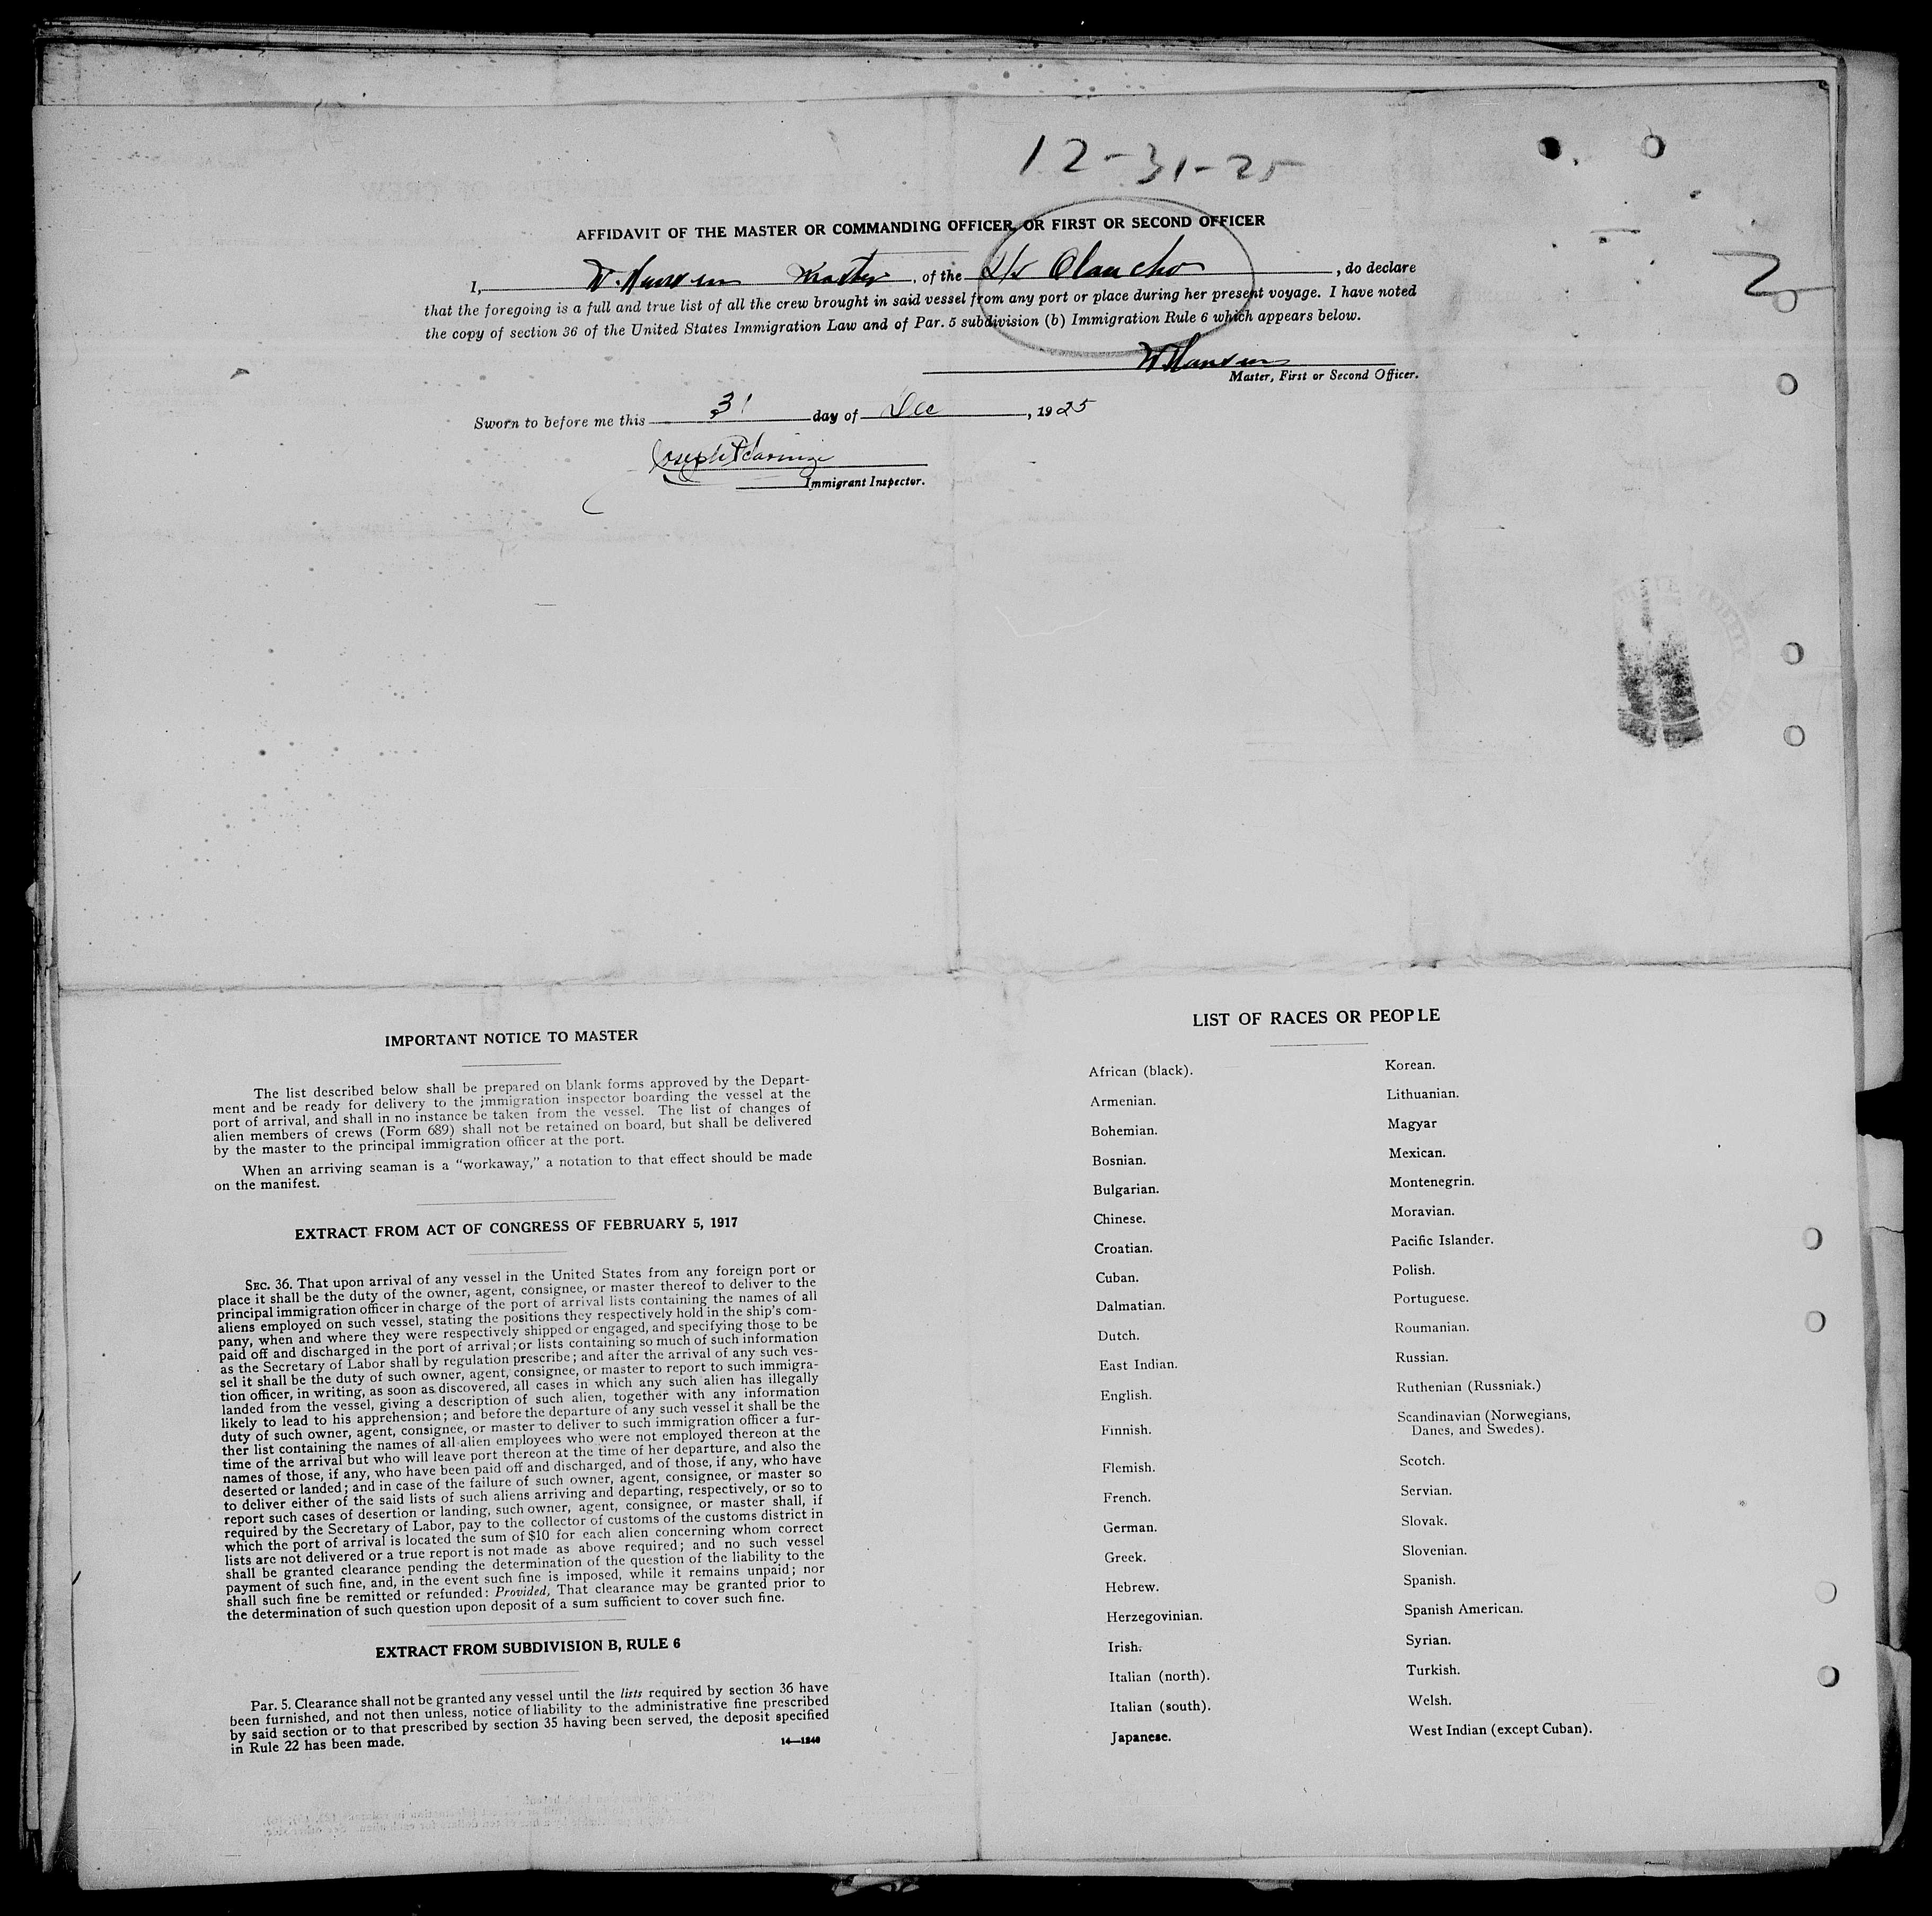 12-31-25
AFFIDAVIT OF THE MASTER OR COMMANDING OFFICER, OR FIRST OR SECOND OFFICER
I, W. Hansen Master, of the Olancho, do declare
that the foregoing is a full and true list of all the crew brought in said vessel from any port or place during her present voyage. I have noted
the copy of section 36 of the United States Immigration Law and of Par. 5 subdivision (b) Immigration Rule 6 which appears below.
W Hansen
Master, First or Second Officer.
Sworn to before me this 31 day of Dec, 1925
Joseph
Immigrant Inspector.
IMPORTANT NOTICE TO MASTER
The list described below shall be prepared on blank forms approved by the Depart-
ment and be ready for delivery to the immigration inspector boarding the vessel at the
port of arrival, and shall in no instance be taken from the vessel. The list of changes of
alien members of crews (Form 689) shall not be retained on board, but shall be delivered
by the master to the principal immigration officer at the port.
When an arriving seaman is a "workaway," a notation to that effect should be made
on the manifest.
EXTRACT FROM ACT OF CONGRESS OF FEBRUARY 5, 1917
SEC. 36. That upon arrival of any vessel in the United States from any foreign port or
place it shall be the duty of the owner, agent, consignee, or master thereof to deliver to the
principal immigration officer in charge of the port of arrival lists containing the names of all
aliens employed on such vessel, stating the positions they respectively hold in the ship's com-
pany, when and where they were respectively shipped or engaged, and specifying those to be
paid off and discharged in the port of arrival; or lists containing so much of such information
as the Secretary of Labor shall by regulation prescribe; and after the arrival of any such ves-
sel it shall be the duty of such owner, agent, consignee, or master to report to such immigra-
tion officer, in writing, as soon as discovered, all cases in which any such alien has illegally
landed from the vessel, giving a description of such alien, together with any information
likely to lead to his apprehension; and before the departure of any such vessel it shall be the
duty of such owner, agent, consignee, or master to deliver to such immigration officer a fur-
ther list containing the names of all alien employees who were not employed thereon at the
time of the arrival but who will leave port thereon at the time of her departure, and also the
names of those, if any, who have been paid off and discharged, and of those, if any, who have
deserted or landed; and in case of the failure of such owner, agent, consignee, or master so
to deliver either of the said lists of such aliens arriving and departing, respectively, or so to
report such cases of desertion or landing, such owner, agent, consignee, or master shall, if
required by the Secretary of Labor, pay to the collector of customs of the customs district in
which the port of arrival is located the sum of $10 for each alien concerning whom correct
lists are not delivered or a true report is not made as above required; and no such vessel
shall be granted clearance pending the determination of the question of the liability to the
payment of such fine, and, in the event such fine is imposed, while it remains unpaid; nor
shall such fine be remitted or refunded: Provided, That clearance may be granted prior to
the determination of such question upon deposit of a sum sufficient to cover such fine.
EXTRACT FROM SUBDIVISION B, RULE 6
Par. 5. Clearance shall not be granted any vessel until the lists required by section 36 have
been furnished, and not then unless, notice of liability to the administrative fine prescribed
by said section or to that prescribed by section 35 having been served, the deposit specified
in Rule 22 has been made.
14—1240
LIST OF RACES OR PEOPLE
African (black).
Armenian.
Bohemian.
Bosnian.
Bulgarian.
Chinese.
Croatian.
Cuban.
Dalmatian.
Dutch.
East Indian.
English.
Finnish.
Flemish.
French.
German.
Greek.
Hebrew.
Herzegovinian.
Irish.
Italian (north).
Italian (south).
Japanese.
Korean.
Lithuanian.
Magyar
Mexican.
Montenegrin.
Moravian.
Pacific Islander.
Polish.
Portuguese.
Roumanian.
Russian.
Ruthenian (Russniak.)
Scandinavian (Norwegians,
Danes, and Swedes).
Scotch.
Servian.
Slovak.
Slovenian.
Spanish.
Spanish American.
Syrian.
Turkish.
Welsh.
West Indian (except Cuban).